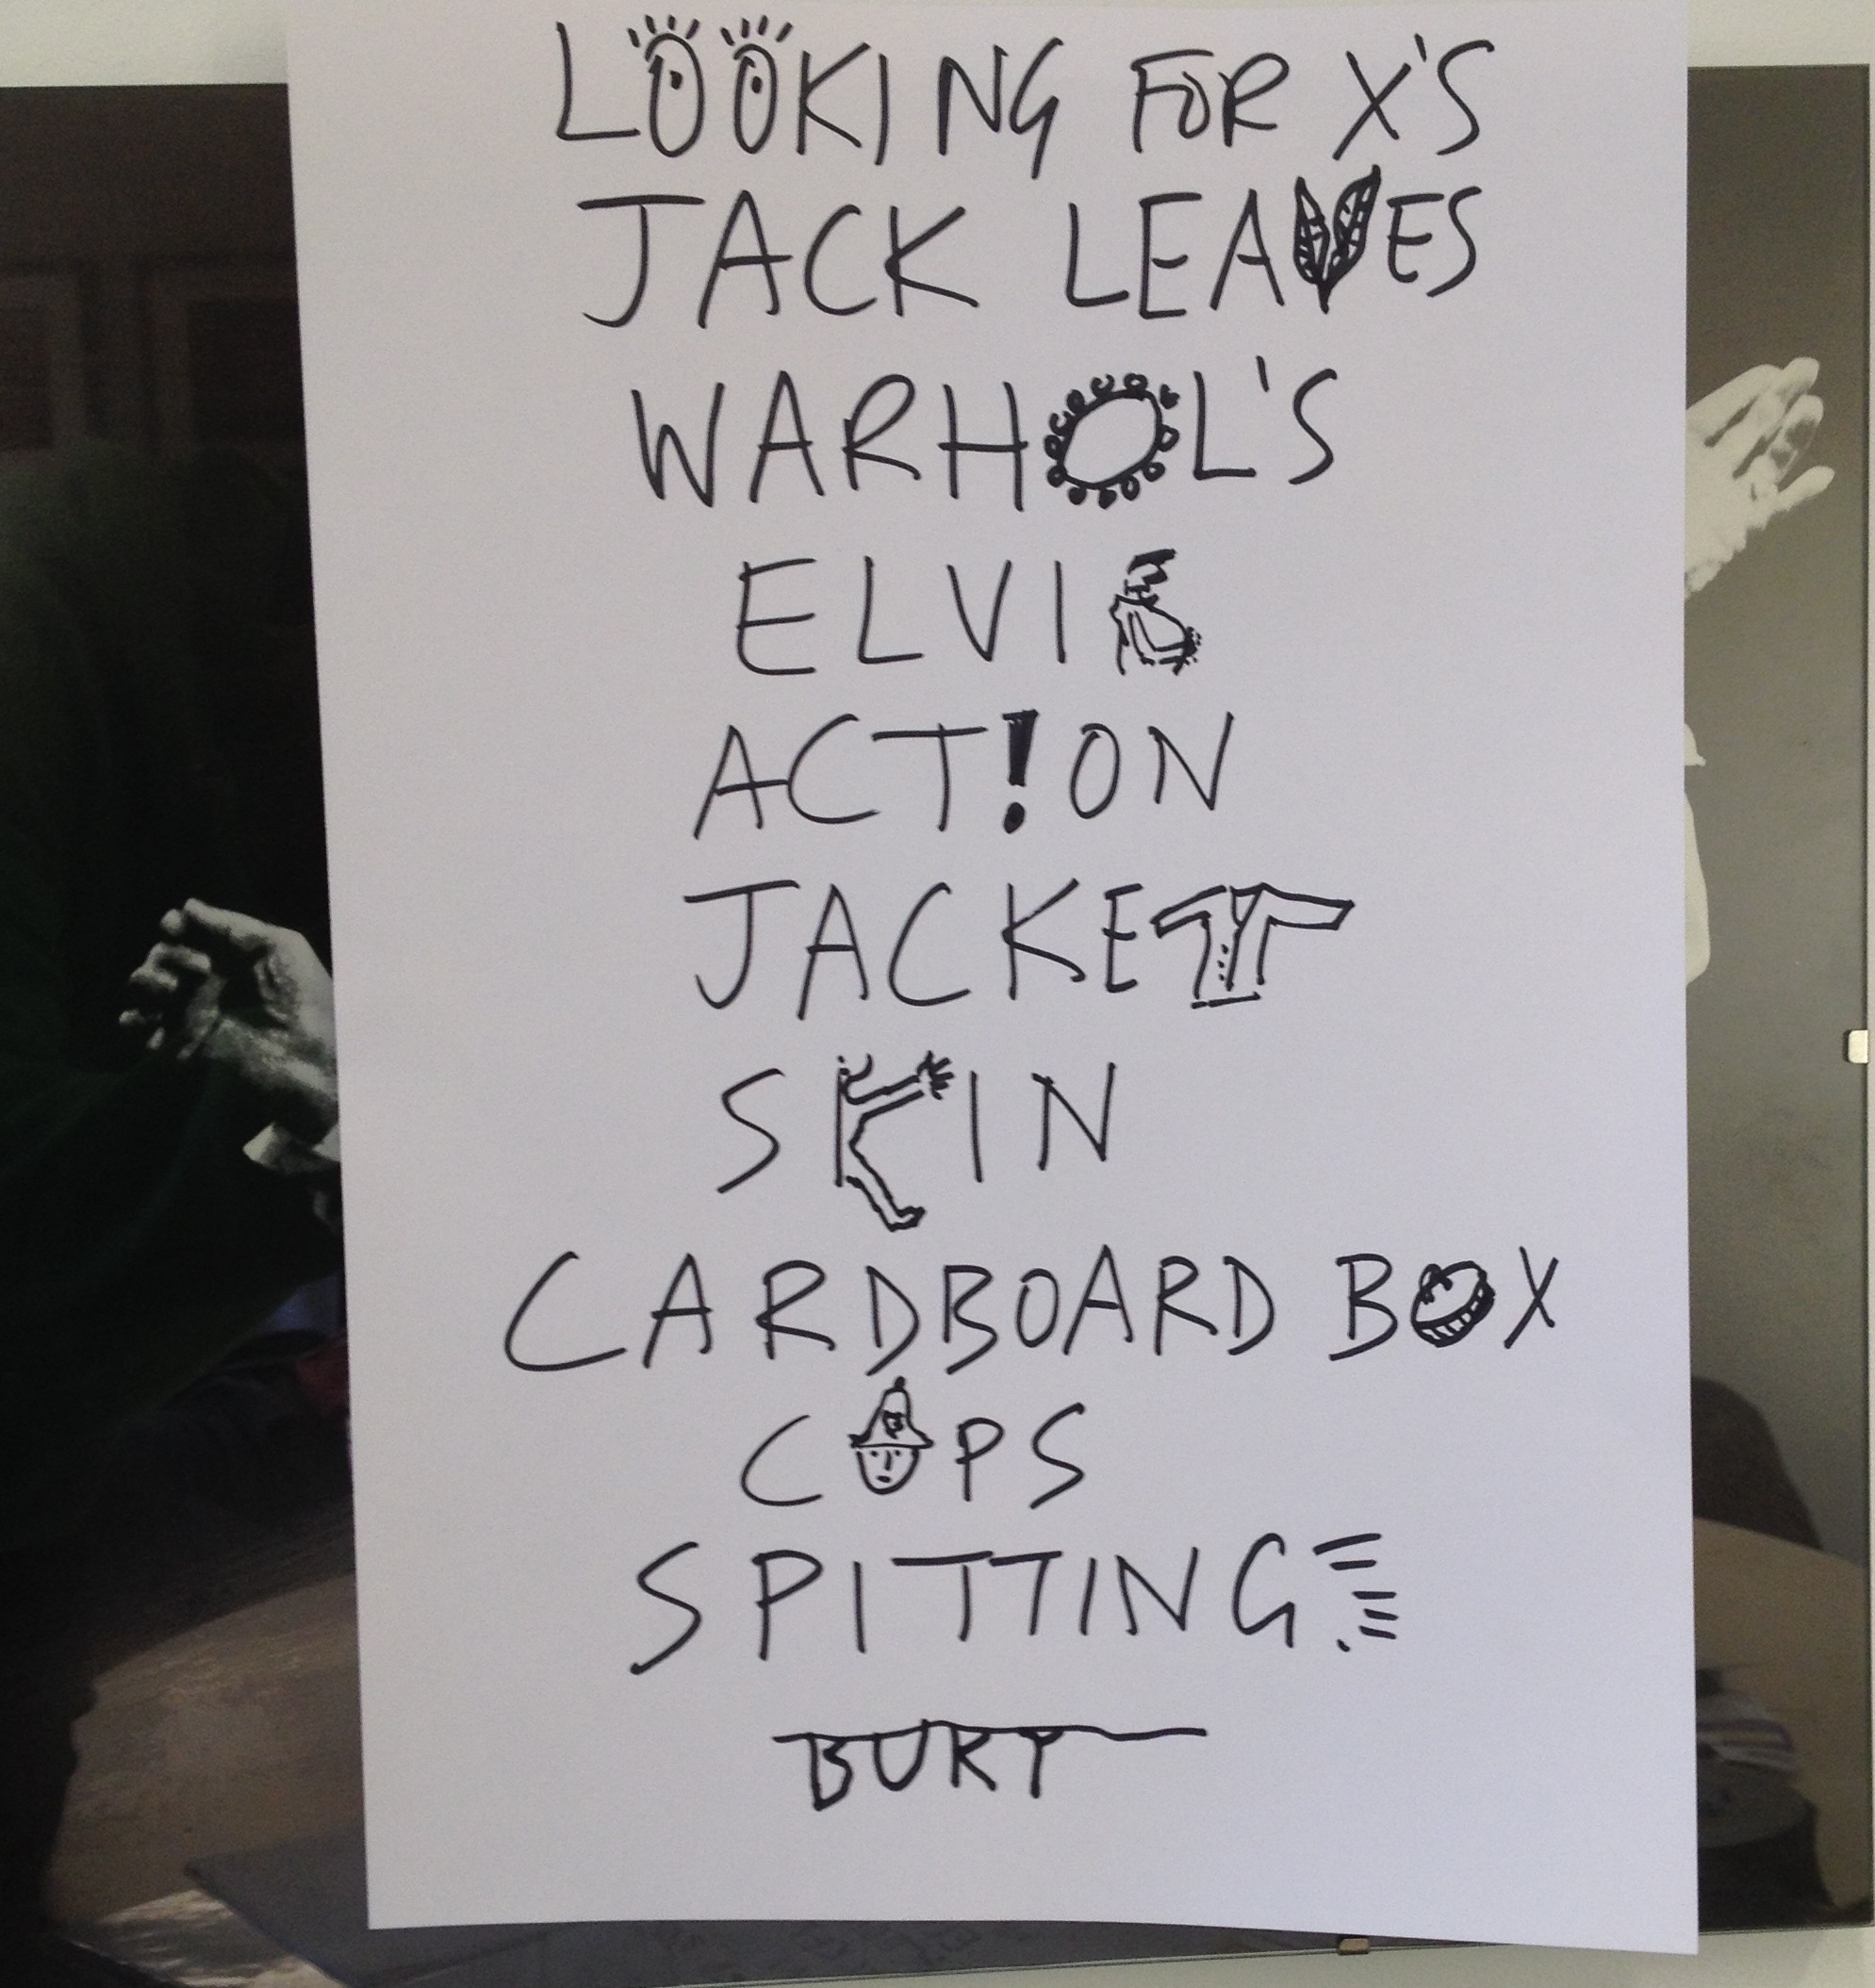 LOOKING FOR X'S
JACK LEAVES
WARHOL'S
ELVIS
ACT!ON
JACKET
SKIN
CARDBOARD BOX
COPS
SPITTING
BURY